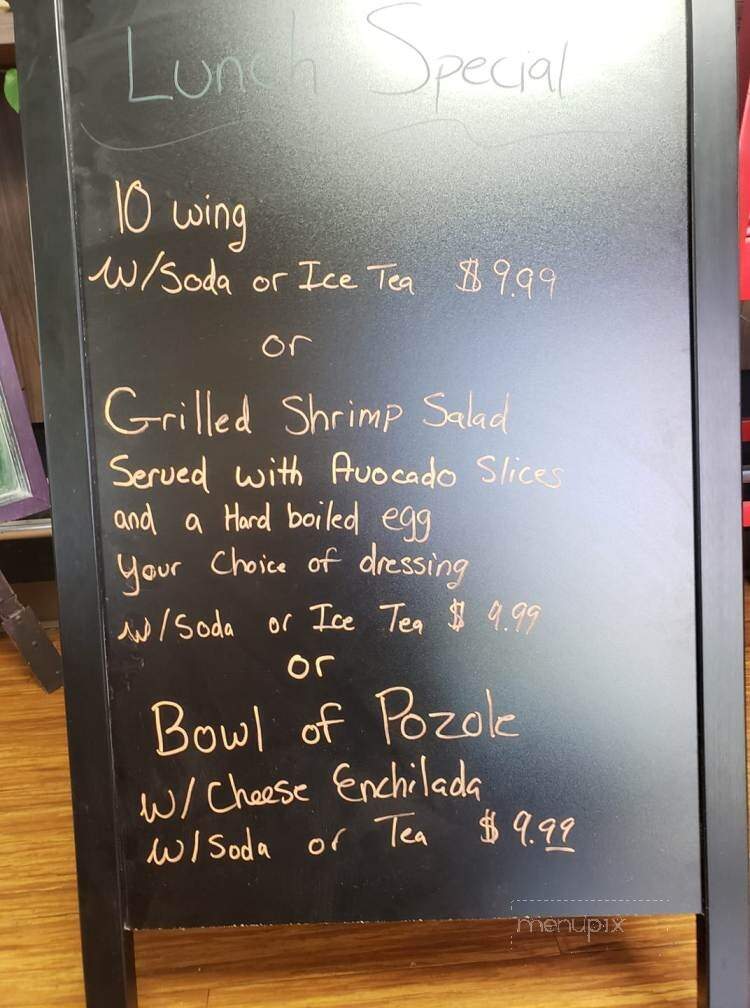 Lunch Special
10 wing
w/Soda or Ice Tea $9.99
or
Grilled Shrimp Salad
Served with Avocado Slices
and a Hard boiled egg
your Choice of dressing
w/Soda or Ice Tea $9.99
or
Bowl of Pozole
w/Cheese Enchilada
w/Soda or Tea $9.99
menupix